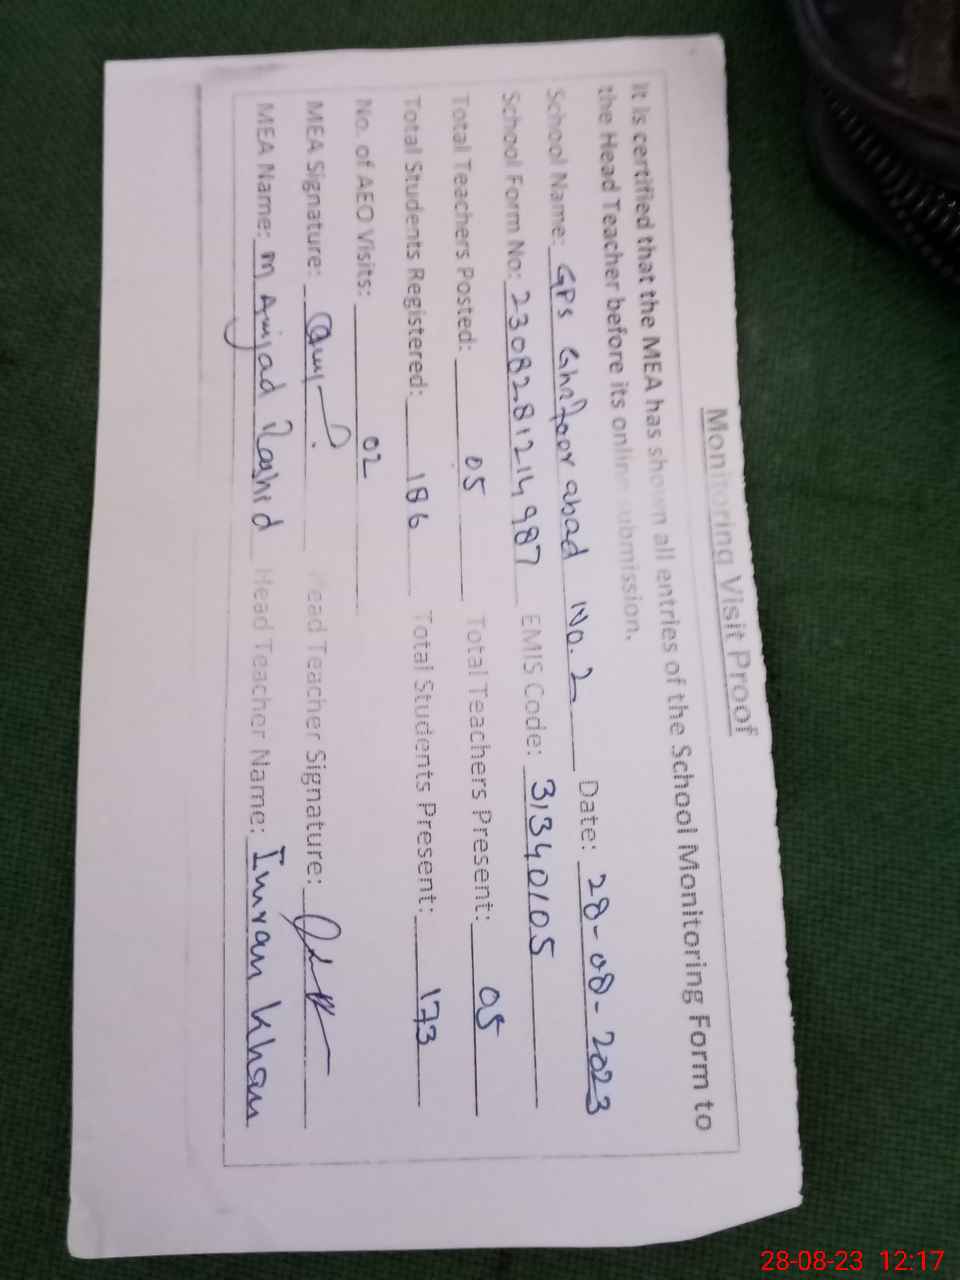 Monitoring Visit Proof
It is certified that the MEA has shown all entries of the School Monitoring Form to
the Head Teacher before its online submission.
School Name: GPS Ghafoor abad No. 2 Date: 28-08-2023
School Form No: 2308281214987 EMIS Code: 31340105
Total Teachers Posted: 05 Total Teachers Present: 05
Total Students Registered: 186 Total Students Present: 173
No. of AEO Visits: 02
MEA Signature: Head Teacher Signature:
MEA Name: M Amjad Rashid Head Teacher Name: Imran Khan
28-08-23 12:17